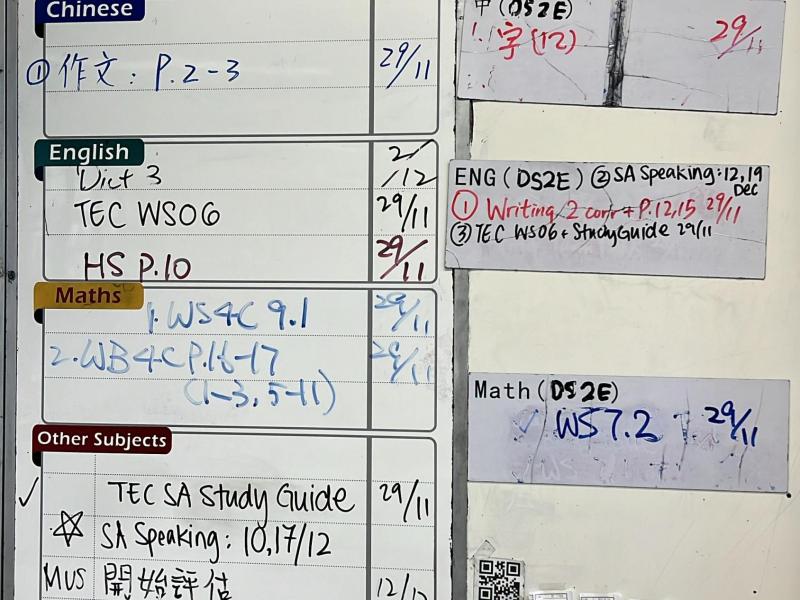 Chinese
① 作文: P.2-3 29/11
English
Dict 3 2/12
TEC WS06 29/11
HS P.10 29/11
Maths
1. WS4C 9.1 29/11
2. WB 4C P.16-17 29/11
(1-3, 5-11)
Other Subjects
✓ TEC SA Study Guide 29/11
☆ SA Speaking: 10,17/12
MUS 開始評估 12/12
中 (DS2E)
1. 字(12) 29/11
ENG (DS2E) ② SA Speaking: 12,19 Dec
① Writing 2 corr + P.12,15 29/11
③ TEC WS06 + Study Guide 29/11
Math (DS2E)
✓ WS7.2 29/11